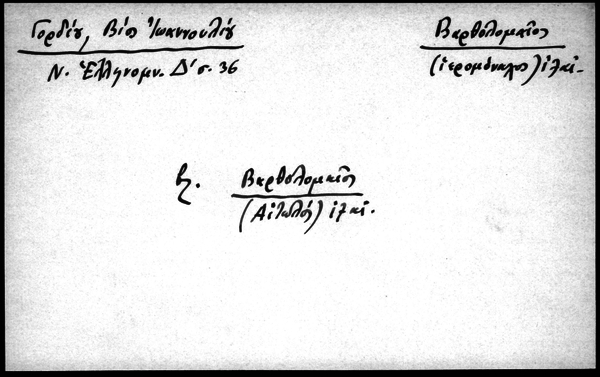 Γορδίου, Βίος Ἰωαννουλίου
Ν. Ἑλληνομν. Δ' σ. 36
Βαρθολομαῖος
(ἱερομόναχος)
βλ. Βαρθολομαῖος
(Αἰτωλός)